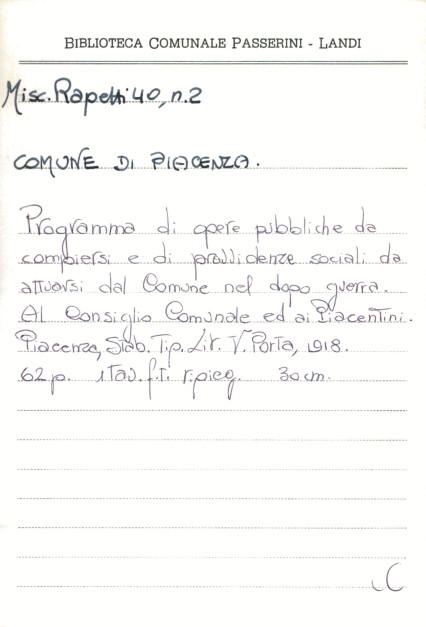 BIBLIOTECA COMUNALE PASSERINI - LANDI
Misc. Rapetti 40, n.2
COMUNE DI PIACENZA.
Programma di opere pubbliche da
compiersi e di provvidenze sociali da
attuarsi dal Comune nel dopo guerra.
Al Consiglio Comunale ed ai Piacentini.
Piacenza, Stab. Tip. Lit. V. Porta, 1918.
62 p. 1 Tav. f.t. ripieg. 30 cm.
C